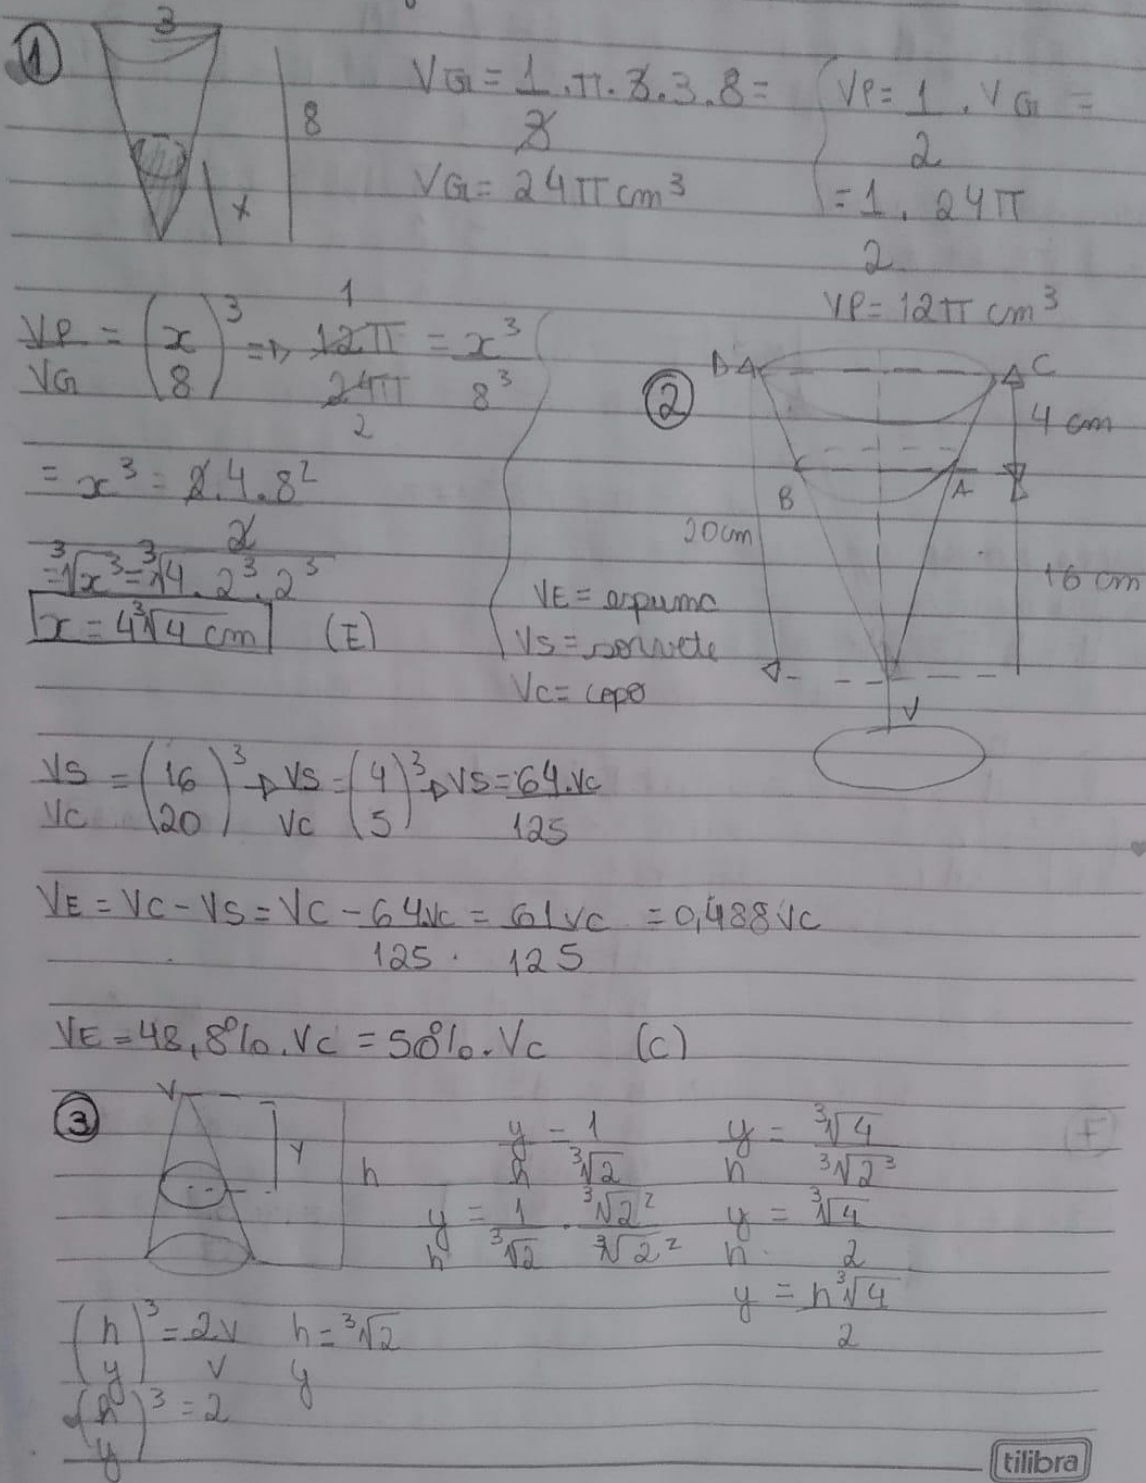 ① 3
8
x
VG = 1/3 . π . 3 . 3 . 8 =
VG = 24π cm³
VP = 1/2 . VG =
= 1/2 . 24π
VP = 12π cm³
VP/VG = (x/8)³ ⇒ 12π/24π = x³/8³
1
2
= x³ = 2.4.8²/2
= ³√x³ = ³√4.2³.2³
x = 4³√4 cm (E)
② D C
4 cm
B A
20cm
16 cm
V
VE = espuma
VS = sorvete
VC = copo
VS/VC = (16/20)³ → VS/VC = (4/5)³ → VS = 64.VC/125
VE = VC - VS = VC - 64VC/125 = 61VC/125 = 0,488VC
VE = 48,8%.VC = 50%.VC (C)
③ V
y
h
y/h = 1/³√2
y/h = 1/³√2 . ³√2²/³√2²
y/h = ³√4/³√2³
y/h = ³√4/2
y = h³√4/2
(h/y)³ = 2V/V h/y = ³√2
(h/y)³ = 2
tilibra